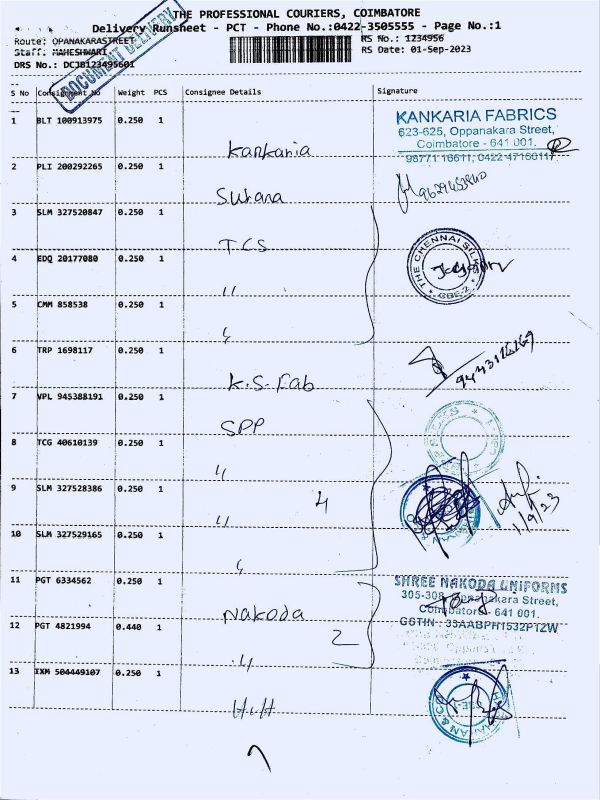 THE PROFESSIONAL COURIERS, COIMBATORE
Delivery Runsheet - PCT - Phone No.:0422-3505555 - Page No.:1
Route: OPANAKARASTREET
RS No.: 1234956
Staff: MAHESHWARI
RS Date: 01-Sep-2023
DRS No.: DCJB123495601
DOCUMENT DELIVERY
S No Consignment No Weight PCS Consignee Details Signature
1 BLT 100913975 0.250 1 Kankaria
KANKARIA FABRICS
623-625, Oppanakara Street,
Coimbatore - 641 001.
98771 16611, 0422 4716011
2 PLI 200292265 0.250 1
3 SLM 327520847 0.250 1 TCS
THE CHENNAI SILKS
CBE-2
4 EDQ 20177080 0.250 1 "
5 CMM 858538 0.250 1 "
6 TRP 1698117 0.250 1 K.S. Fab
7 VPL 945388191 0.250 1 SPP
8 TCG 40610139 0.250 1 "
9 SLM 327528386 0.250 1 " 4
1/9/23
10 SLM 327529165 0.250 1 "
11 PGT 6334562 0.250 1 Nakoda
SHREE NAKODA UNIFORMS
305-308, Oppanakara Street,
Coimbatore - 641 001.
GSTIN : 33AABPH1532P1ZW
12 PGT 4821994 0.440 1 " 2
13 IXM 504449107 0.250 1